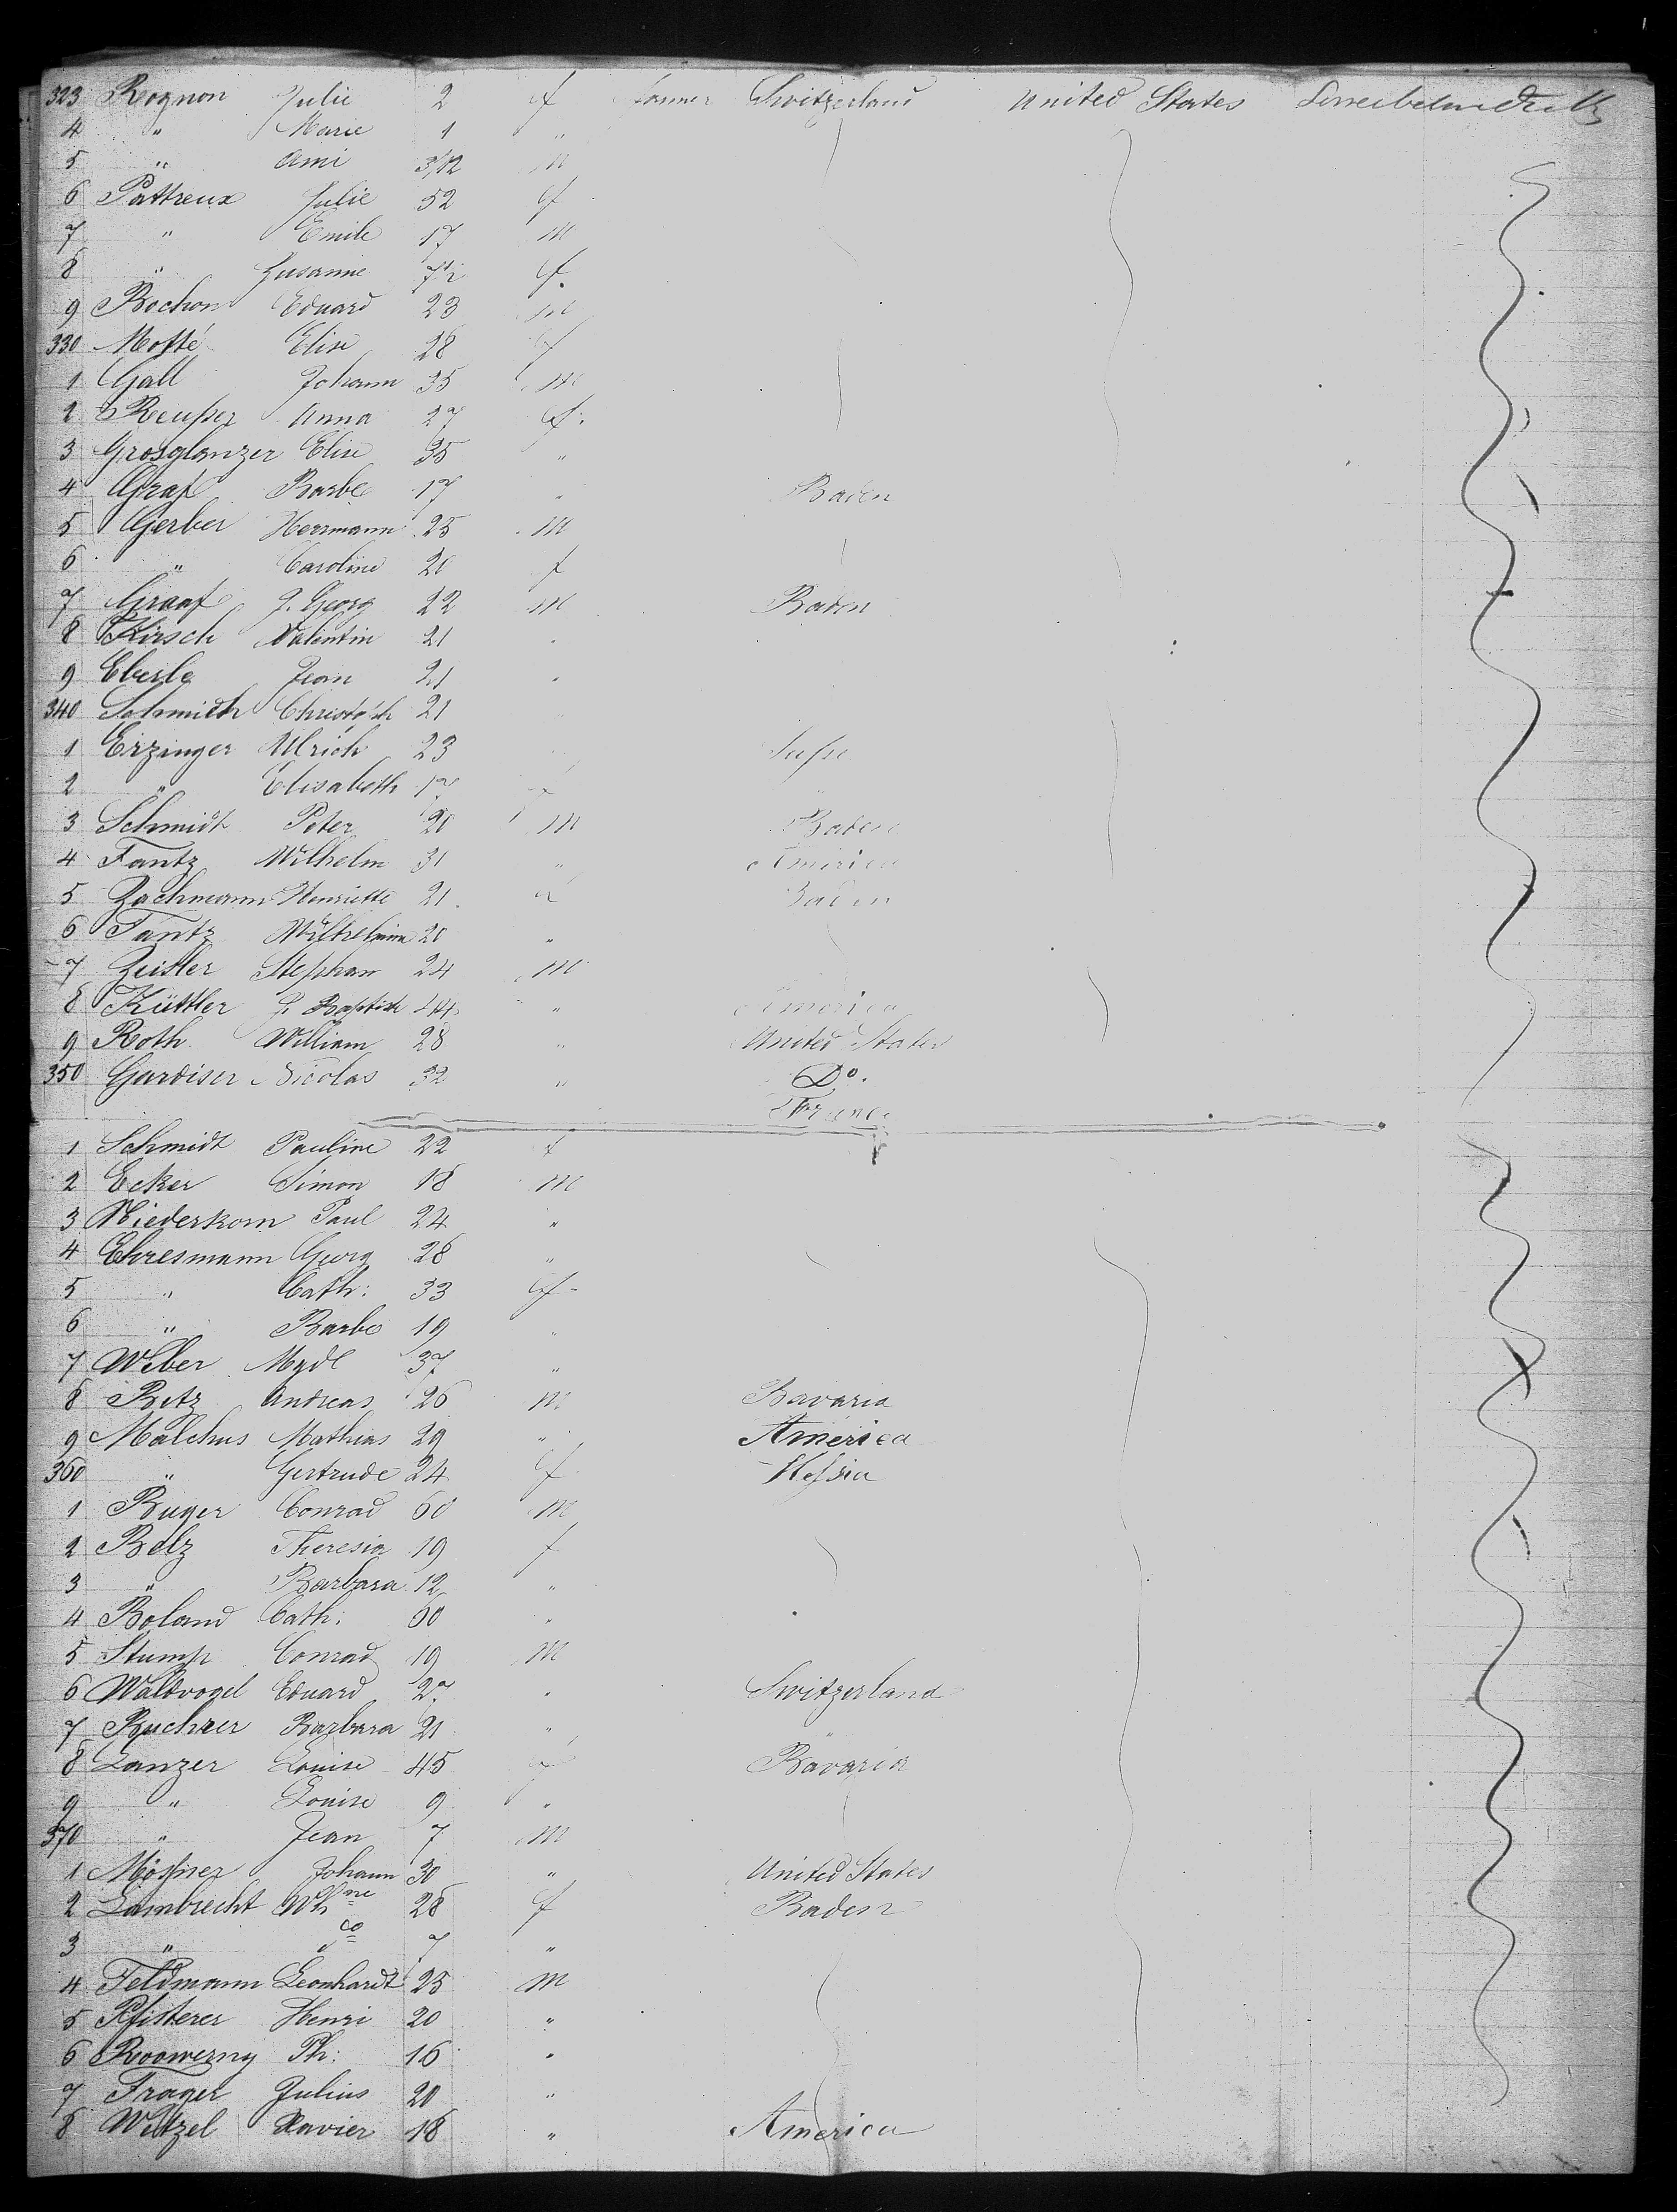 323 Rognon Julie 2 f farmer Switzerland United States
4 " Marie 1 "
5 " Ami 3/12 m
6 Pattreux Julie 52 f
7 " Emile 17 m
8 " Susanne 7 1/2 f.
9 Rochon Eduard 23 m
330 Elise 28 f
1 Gall Johann 35 m
2 Reusser Anna 27 f.
3 Grosglanzer Elise 35 "
4 Graf Barbe 17 " Baden
5 Gerber Herrmann 25 m
6 " Caroline 20 f
7 Graaf J. Georg 22 m Baden
8 Kirsch Valentin 21 "
9 Eberle Jean 21 "
340 Schmidt 21
1 Erzinger Ulrich 23
2 " Elisabeth 17 f
3 Schmidt Peter 20 m Baden
4 Fantz Wilhelm 31 " America
5 Zachmann Henriette 21 f Baden
6 Fantz Wilhelmina 20 "
7 Zeisler Stephan 24 m
8 Küttler J. Baptist 44 " America
9 Roth William 28 " United States
350 Gardiser Nicolas 32 " Do.
France
1 Schmidt Pauline 22 f
2 Ecker Simon 18 m
3 Niederkorn Paul 24 "
4 Ehresmann Georg 28 "
5 " Cath: 33 f
6 " Barbe 19 "
7 Weber Mgdl 37 "
8 Betz Andreas 26 m Bavaria
9 Malchus Mathias 29 " America
360 " Gertrude 24 f Hessia
1 Ruger Conrad 60 m
2 Belz Theresia 19 f
3 " Barbara 12 "
4 Boland Cath: 60 "
5 Stump Conrad 19 m
6 Waldvogel Eduard 27 " Switzerland
7 Barbara 21 " "
8 Lanzer Louise 45 f Bavaria
9 " Louise 9 "
370 " Jean 7 m
1 Mössner Johann 30 " United States
2 Lambrecht Whne 28 f Baden
3 " do 7 "
4 Feldmann Leonhardt 25 m
5 Pfisterer Henri 20 "
6 Ph: 16 "
7 Frager Julius 20 "
8 Witzel Xavier 18 " America